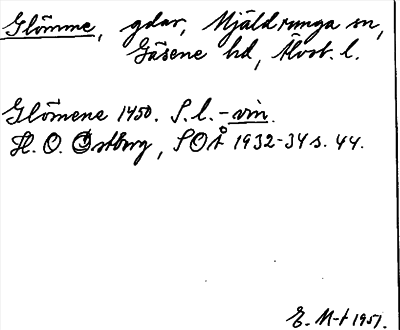 Glömme, gdar, Mjäldrunga sn,
Gäsene hd, Älvsb. l.
Glömene 1450. S. l. - vin.
H. O. Østberg, SOÅ 1932-34 s. 44.
E. M-t 1951.